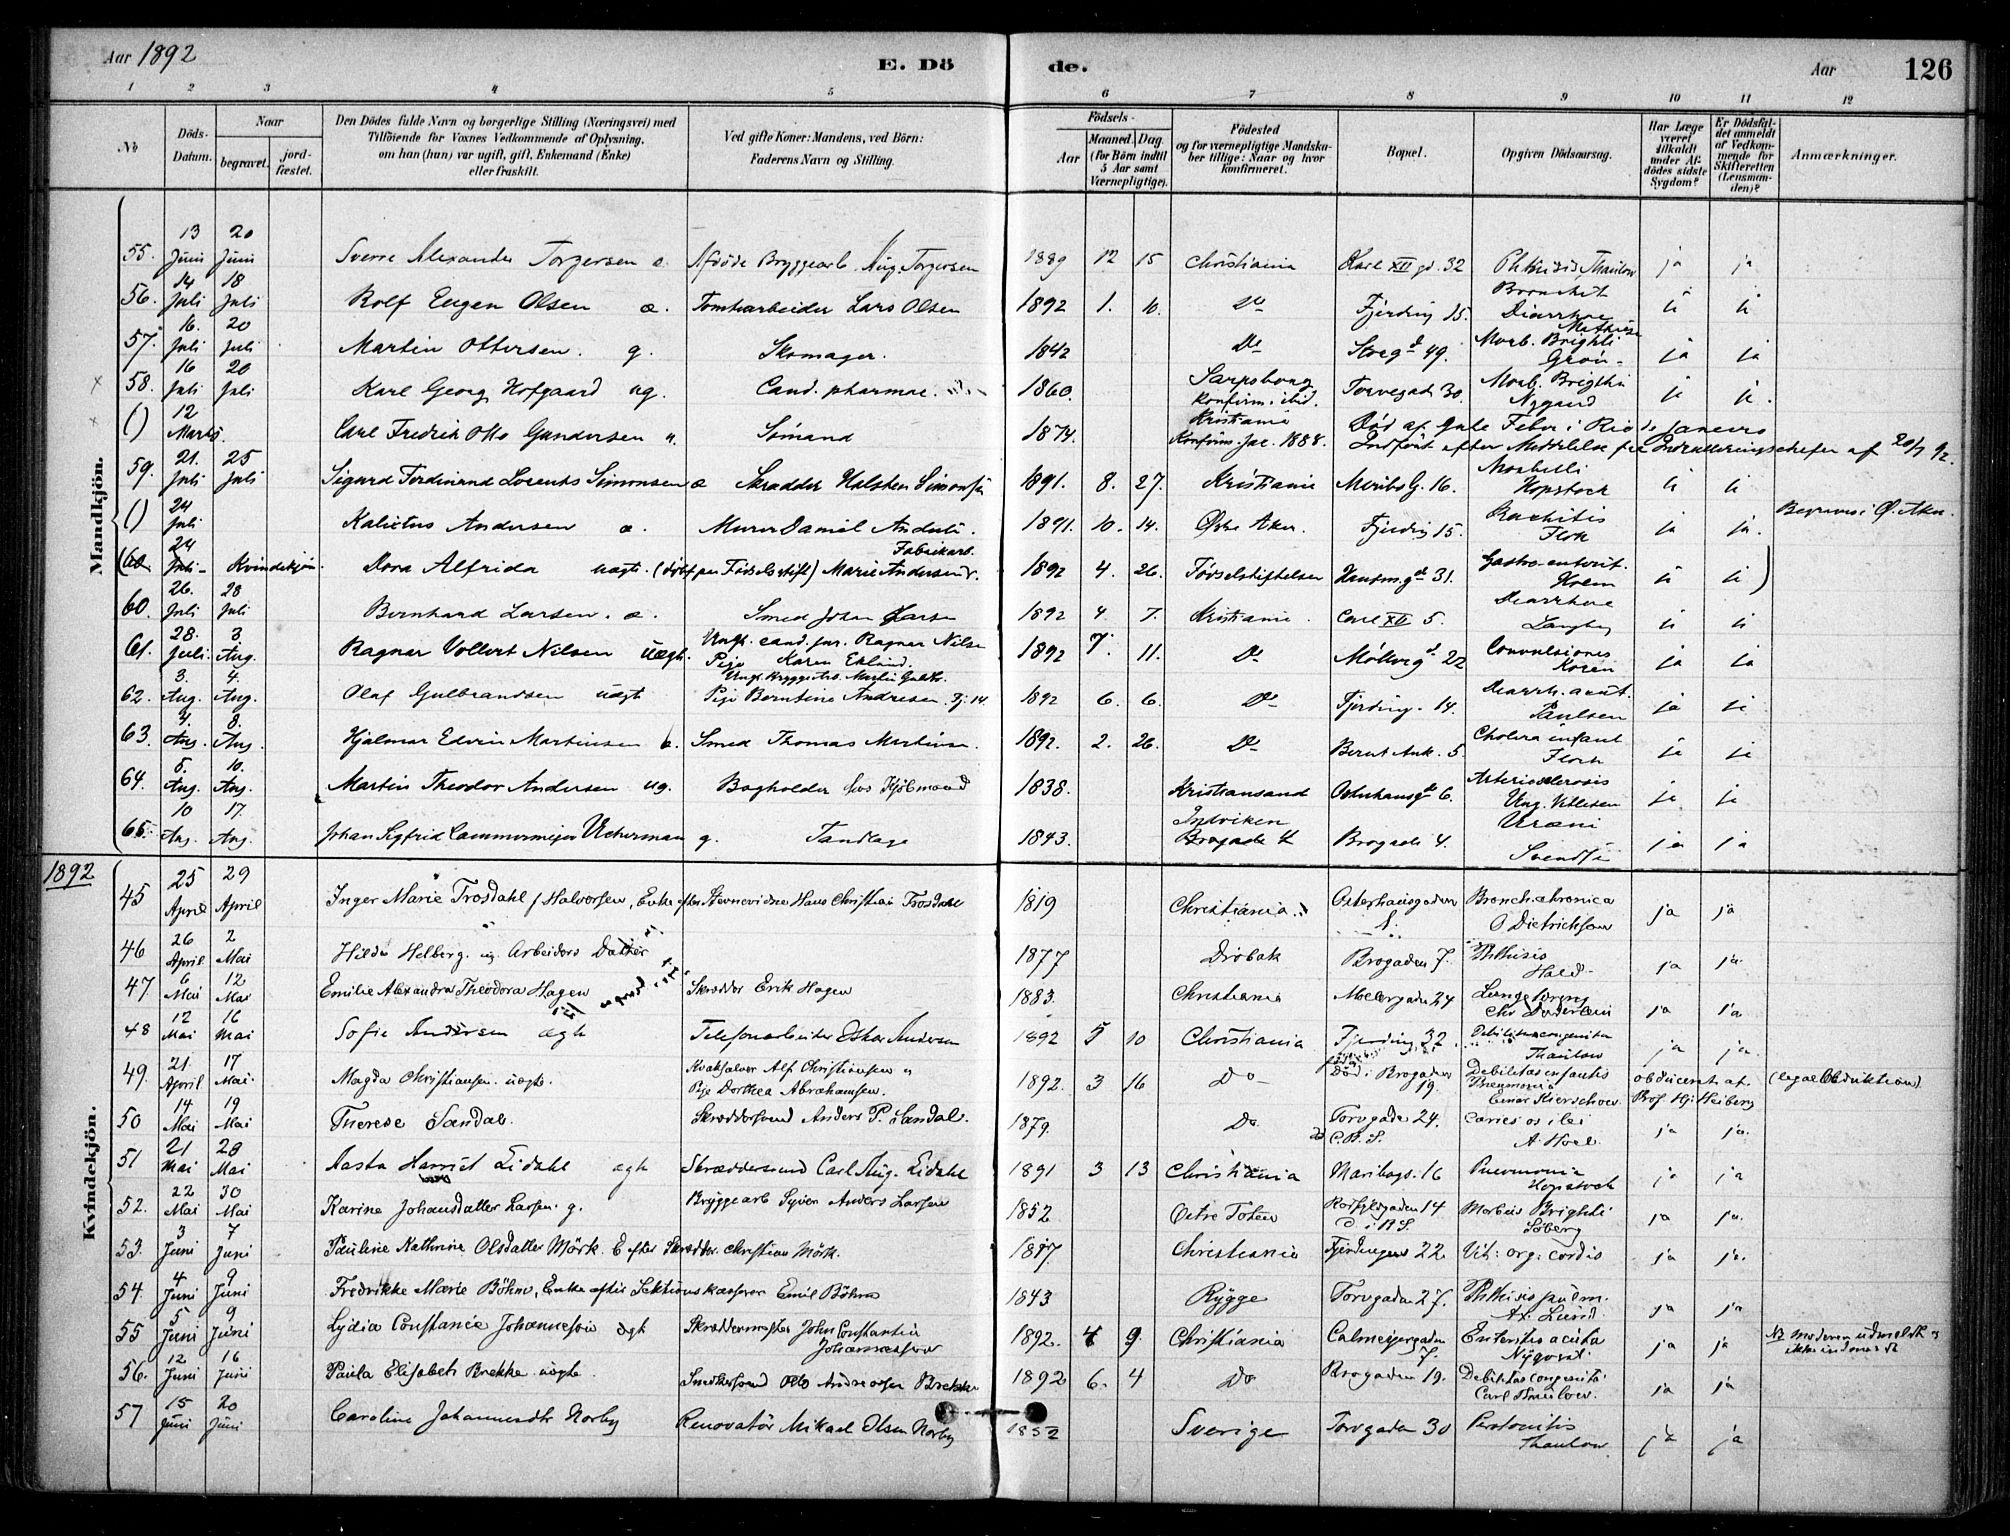 Aar 1892
E. Döde.
Aar
126
1 2 3 4 5 6 7 8 9 10 11 12
No
Döds-Datum.
Naar
begravet.
jord-fæstet.
Den Dödes fulde Navn og borgerlige Stilling (Næringsvei) med
Tilföiende for Voxnes Vedkommende af Oplysning,
om han (hun) var ugift, gift, Enkemand (Enke)
eller fraskilt.
Ved gifte Koner: Mandens, ved Börn:
Faderens Navn og Stilling.
Födsels-
Aar
Maaned. Dag.
(for Börn indtil
5 Aar samt
Værnepligtige).
Födested
og for værnepligtige Mandska-
ber tillige: Naar og hvor
konfirmeret.
Bopæl.
Opgiven Dödsaarsag.
Har Læge
været
tilkaldt
under Af-
dödes sidste
Sygdom?
Er Dödsfal-
det anmeldt
af Vedkom-
mende for
Skifteretten
(Lensman-
den)?
Anmærkninger.
Mandkjön.
55. 13 Juni 20 Juni Sverre Alexander Torgersen æ. Afdöde Bryggearb. Aug Torgersen 1889 12 15 Christiania Karl XII gd. 32 Phthisis Thaulow ja ja
56. 14 Juli 18 Juli Rolf Eugen Olsen æ. Tomtearbeider Lars Olsen 1892 1. 10. Do Fjerding 15. Bronchit Diarrhoe Mathiesen ja ja
57. 16. Juli 20 Juli Martin Ottersen. g. Skomager. 1842 Do Storgd 49. Morb. Brighti Grön- ja ja
58. 16 Juli 20 Juli Karl Georg Hofgaard ug. Cand. pharmac. 1860. Sarpsborg konfirm. ibid. Torvegad 30. Morb. Brigthi Nygaard ja ja.
() 12 Marts. Carl Fredrik Otto Gundersen u. Sömand 1874. Kristiania Konfirm. Jac. 1888. Död af gule Feber i Rio de Janeiro
Indfört efter Meddelelse fra Indrulleringschefen af 20/7 92.
59. 21. Juli 25 Juli Sigurd Ferdinand Lorents Simonsen æ Skrædder Halsten Simonsen 1891. 8. 27. Kristiania Maribo G. 16. Morbilli Hopstock ja ja
() 24 Juli Kalixtus Andersen æ. Murer Daniel Anders. 1891. 10. 14. Östre Aker. Fjerding 15. Rachitis Flock ja ja. Begraves i Ö. Aker.
(60. 24 Juli- Kvindekjön. Dora Alfrida uægt. (döbt paa Födselsstift) Fabrikarb. Marie Andersend. 1892 4. 26. Födselsstiftelsen Hausm.gd 31. Gastro-enterit. Holm ja ja )
60. 26. Juli 28 Juli Bernhard Larsen. æ. Smed Johan Larsen 1892 4 7. Kristiania. Carl XII 5. Diarrhoe Langberg ja ja
61. 28. Juli. 3 Aug. Ragnar Vollert Nilsen uægt. Ungk. cand. jur. Ragnar Nilsen Pige Karen Eklund. 1892 7. 11. Do Möllergd 22 Convulsiones Koren ja ja
62. 3. Aug. 4. Aug. Olaf Gulbrandsen uægt Ungk. Bryggearb. Martin Gulbr. Pige Berntine Andresen. Fj. 14. 1892 6. 6. Do Fjerding. 14. Diarrh. acut. Paulsen ja ja
63. 4. Aug. 8. Aug. Hjalmar Edvin Martinsen æ. Smed Thomas Martinsen. 1892. 2. 26. Do Bernt Ank. 5. Cholera infant. Flock ja ja
64. 5. Aug. 10. Aug. Martin Theodor Andersen ug. Bogholder hos Kjöbmand 1838. Kristiansand Osterhausgd 6. Arteriosclerosis Ung. Vetlesen ja ja
65. 10 Aug. 17. Aug. Johan Sigfrid Cammermeyer Uchermann g. Tandlæge 1843. Indviken Brogade 4 Brogade 4. Uræmi Svendsen ja ja
1892
Kvindekjön.
45 25 April 29 April Inger Marie Trosdahl f. Halvorsen, Enke efter Stevnevidne Hans Christian Trosdahl 1819 Christiania. Osterhausgaden 8. Bronch. chronica O Dietrichson ja ja
46 26 April 2 Mai Hilda Helberg. ug. Arbeiders Datter 1877 Dröbak Brogaden 7. Phthisis Hald- ja ja.
47 6 Mai 12 Mai Emilie Alexandra Theodora Hagen Skrædder Erik Hagen 1883. Christiania Møllergaden 24 Lungebetæn Chr Döderlein ja ja.
48 12 Mai 16 Mai Sofie Andersen ægte Telefonarbeider Oskar Andersen 1892 5 10 Christiania Fjerding 32. Debilitas congenita Thaulow ja ja.
49. 21. April 17 Mai. Magda Christiansen. uægte. Kvaksalver Alf Christiansen og Pige Dorthea Abrahamsen. 1892. 3 16 Do- Död i Brogaden 19. Debilitas infantis Pneumonia Einar Kierschow. obduceret af Prof Hj. Heiberg (legal Obduktion).
50 14 Mai 19 Mai Therese Sandal. Skræddersvend Anders P. Sandal. 1879. Do Torvgade 24. C.B.S. Caries os ilei A. Hoel. ja ja.
51 21 Mai 28 Mai Aasta Harriet Lidahl ægte Skræddersvend Carl Aug. Lidahl 1891 3 13 Christiania Maribogd. 16 Pneumonia Hopstock ja ja
52. 22 Mai 30 Mai Karine Johansdatter Larsen. g. Bryggearb Syver Anders Larsen 1852 Östre Toten Korsfylgaden 14 D. i R.S. Morbus Brighti Söberg ja ja.
53. 3 Juni 7 Juni Pauline Kathrine Olsdatter Mörk. E efter Skrædder Christian Mörk. 1817. Christiania Fjerdingen 22. Vit: org: cordis ja ja.
54. 4 Juni 9 Juni Fredrikke Marie Böhn, Enke efter Sektionskasserer Emil Böhn 1843 Rygge Torvgaden 27. Phthisis pulm. Ax. Lund. ja ja
55 5 Juni 9 Juni Lydia Constance Johannesen ægte Skræddermester John Constantin Johannessen 1892. 4 9 Christiania Calmeyergaden 7. Enteritis acuta Nyqvist. ja ja NB Moderen udmeldt ikke indmeldt
56. 12 Juni 16 Juni Paula Elisabeth Brekke uægte. Snedkersvend Otto Andreassen Brekke 1892 6. 4 Do Brogaden 19. Debilitas congenita Carl Thaulow. ja ja
57 15 Juni 20 Juni Caroline Johannesdtr Norby Renovatör Mikael Olsen Norby 1852 Sverige Torvgaden 30 Peritonitis Thaulow ja ja